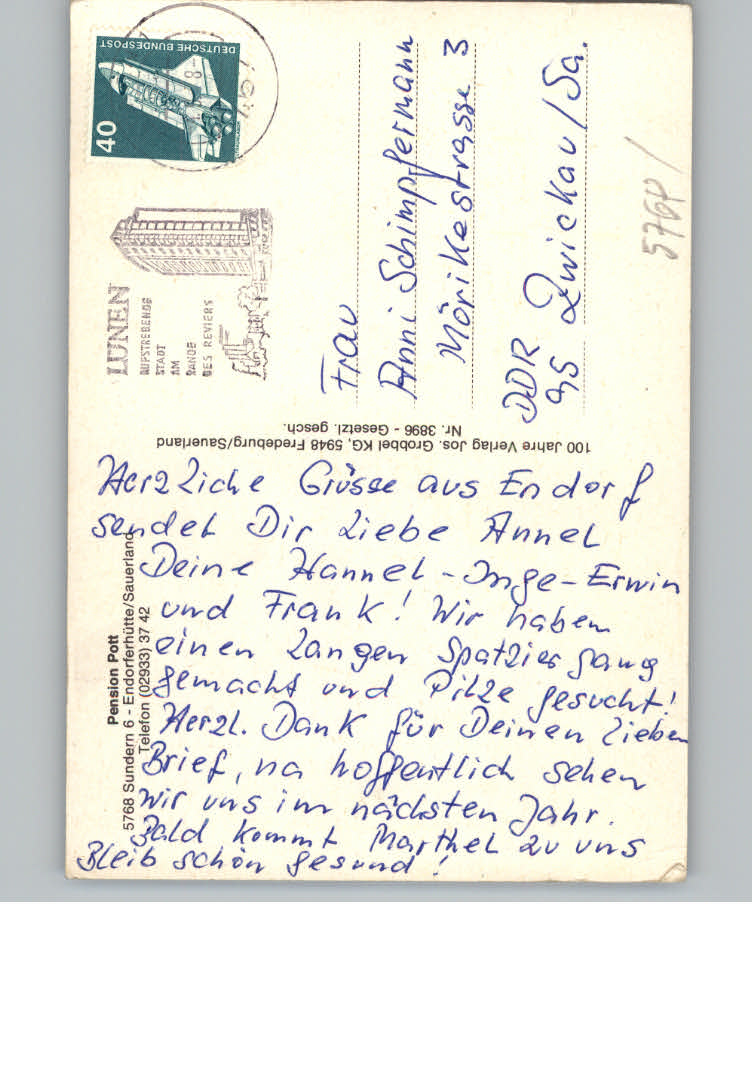 Herzliche Grüsse aus Endorf
sendet Dir Liebe Annel
Deine Hannel-Inge-Erwin
und Frank! Wir haben
einen Langen Spatziergang
gemacht und Pilze gesucht!
Herzl. Dank für Deinen Lieben
Brief, na hoffentlich sehen
wir uns im nächsten Jahr.
Bald kommt Marthel zu uns
Bleib schön gesund!
Pension Pott
5768 Sundern 6 - Endorferhütte/Sauerland
Telefon (02933) 37 42
100 Jahre Verlag Jos. Grobbel KG, 5948 Fredeburg/Sauerland
Nr. 3896 - Gesetzl. gesch.
DEUTSCHE BUNDESPOST
40
LÜNEN
AUFSTREBENDE
STADT
AM
RANDE
DES REVIERS
Frau
Anni Schimpfermann
Mörikestrasse 3
DDR
95 Zwickau/Sa.
5764/